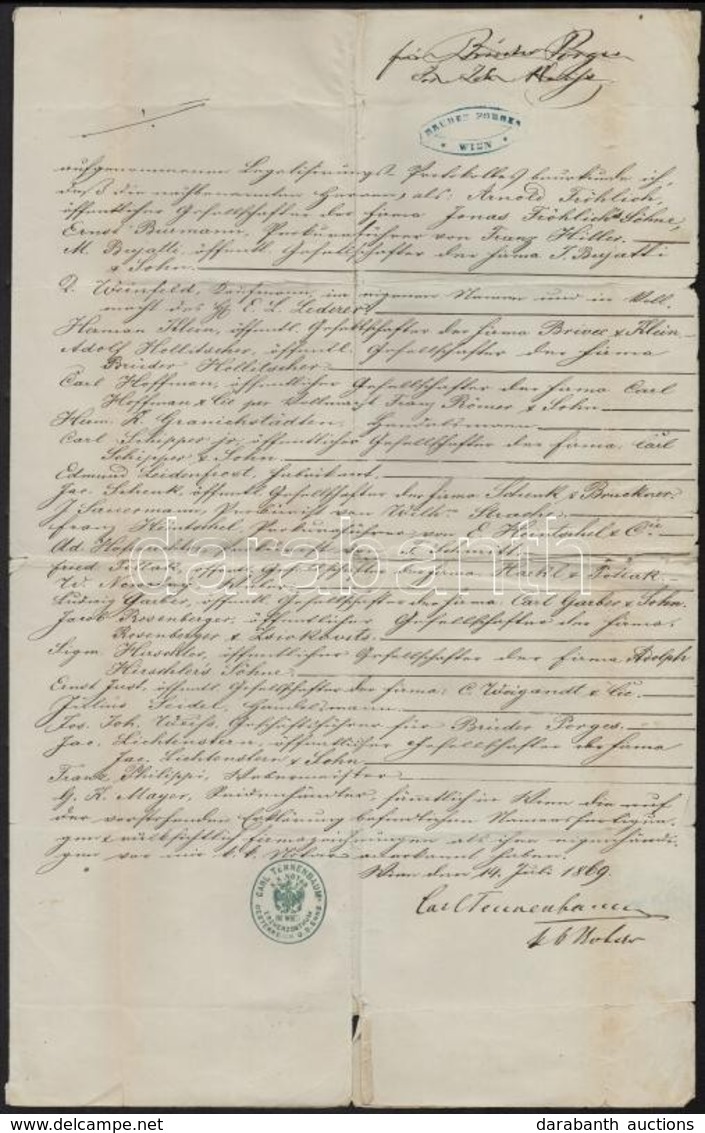 für Brüder Porges
Jos. Joh. Weiss
BRÜDER PORGES
* WIEN *
aufgenommenen Legalisirungs Protokolles beurkunde ich,
daß die nachbenannten Herren, als, Arnold Fröhlich,
öffentlicher Gesellschafter der Firma Jonas Fröhlich's Söhne,
Ernst Burmann, Prokuraführer von Franz Hiller.
M. Bujatti, öffentl. Gesellschafter der Firma F. Bujatti
& Sohn.
D. Weinfeld, Kaufmann, im eigenen Namen und in Voll-
macht des H. E. L. Lederer,
Herman Klein, öffentl. Gesellschafter der Firma & Klein
Adolf Hollitscher, öffentl. Gesellschafter der Firma
Brüder Hollitscher
Carl Hoffman, öffentlicher Gesellschafter der Firma Carl
Hoffman & Cie per Vollmacht Franz Römer & Sohn
Herm. K. Granichstädten, Handelsmann
Carl Schipper jr, öffentlicher Gesellschafter der Firma: Carl
Schipper & Sohn
Edmund Leidenfrost, Fabrikant
Jac. Schenk öffentl. Gesellschafter der Firma Schenk & Bruckner.
J. Prokurist von Wilh.
Franz Hentschel, Prokuraführer von E. Hentschel & Cie.
Ad. Prokurist v. F. Schmitt
Fried. Pollak, öffentl. Gesellschafter der Firma Hackl & Pollak
W.
Ludwig Garber, öffentl. Gesellschafter der Firma Carl Garber & Sohn.
Jacob Rosenberger, öffentlicher Gesellschafter der Firma:
Rosenberger &
Sigm. Hirschler, öffentlicher Gesellschafter der Firma Adolph
Hirschler's Söhne
Ernst Just, öffentl. Gesellschafter der Firma: C. Weigandt & Cie.
Julius Seidel, Handelsmann
Jos. Joh. Weiss, Geschäftsführer für Brüder Porges
Jac. Lichtenstern, öffentlicher Gesellschafter der Firma
Jac. Lichtenstern & Sohn
Franz Philippi, Webermeister
G. K. Mayer, Seidenhändler, sämmtlich in Wien die auf
der vorstehenden Erklärung befindlichen Namensfertigun-
gen & rücksichtlich Firmazeichnungen als ihre eigenhändi-
gen vor mir k. k. Notar anerkannt haben.
Wien den 14. Juli 1869.
Carl Tennenbaum
k k Notar
CARL TENNENBAUM
K.K. NOTAR
IN WIEN
ERZHERZOGTHUM
OESTERREICH U.D. ENNS
darabanth
darabanth auctions